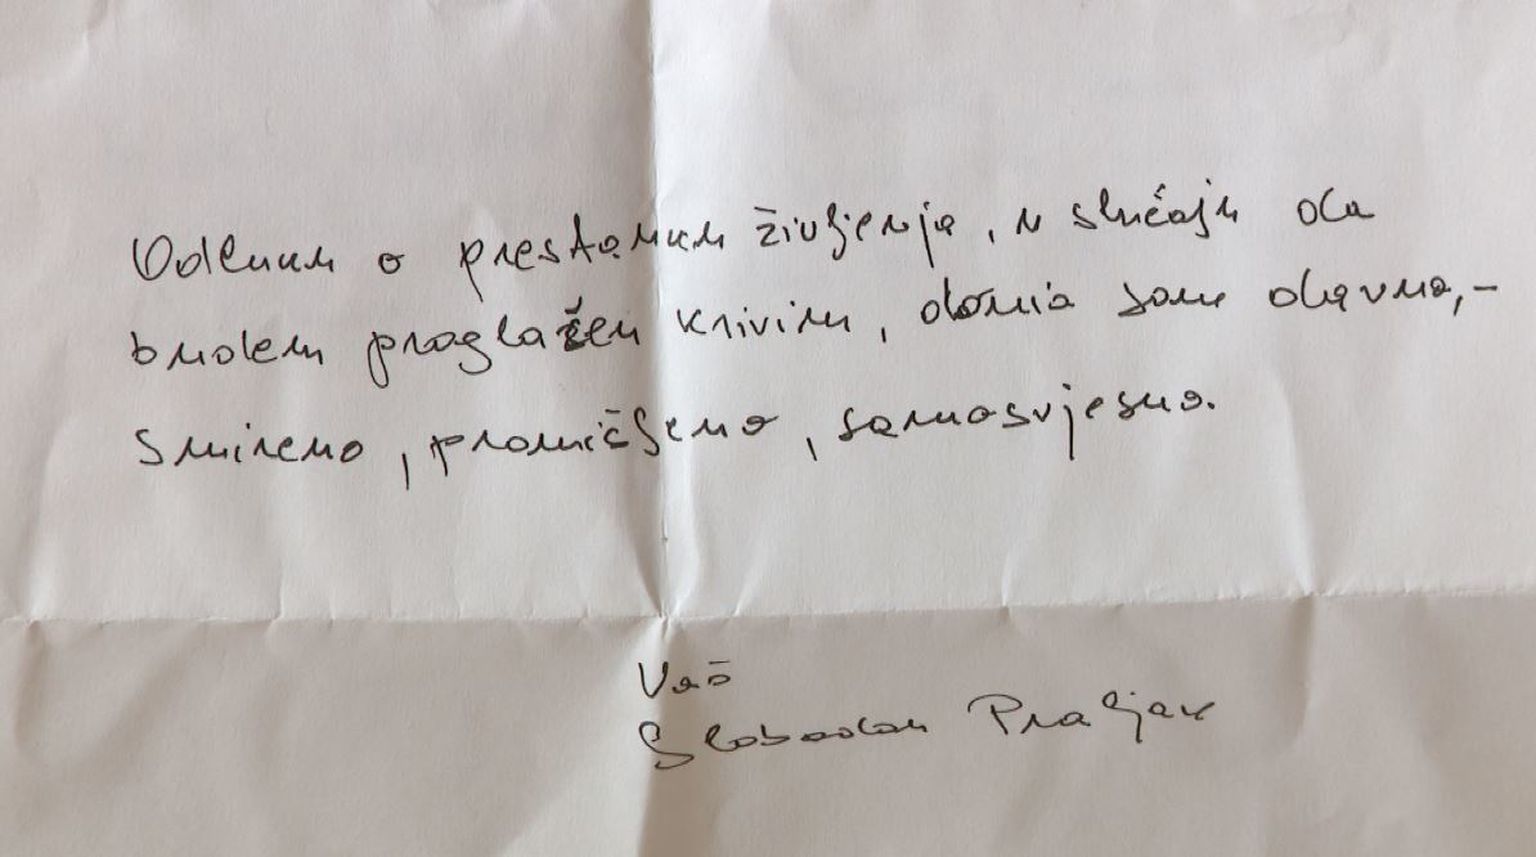 Odluku o prestanku življenja, u slučaju da
budem proglašen krivim, donio sam davno, -
smireno, promišljeno, samosvjesno.
Vaš
Slobodan Praljak